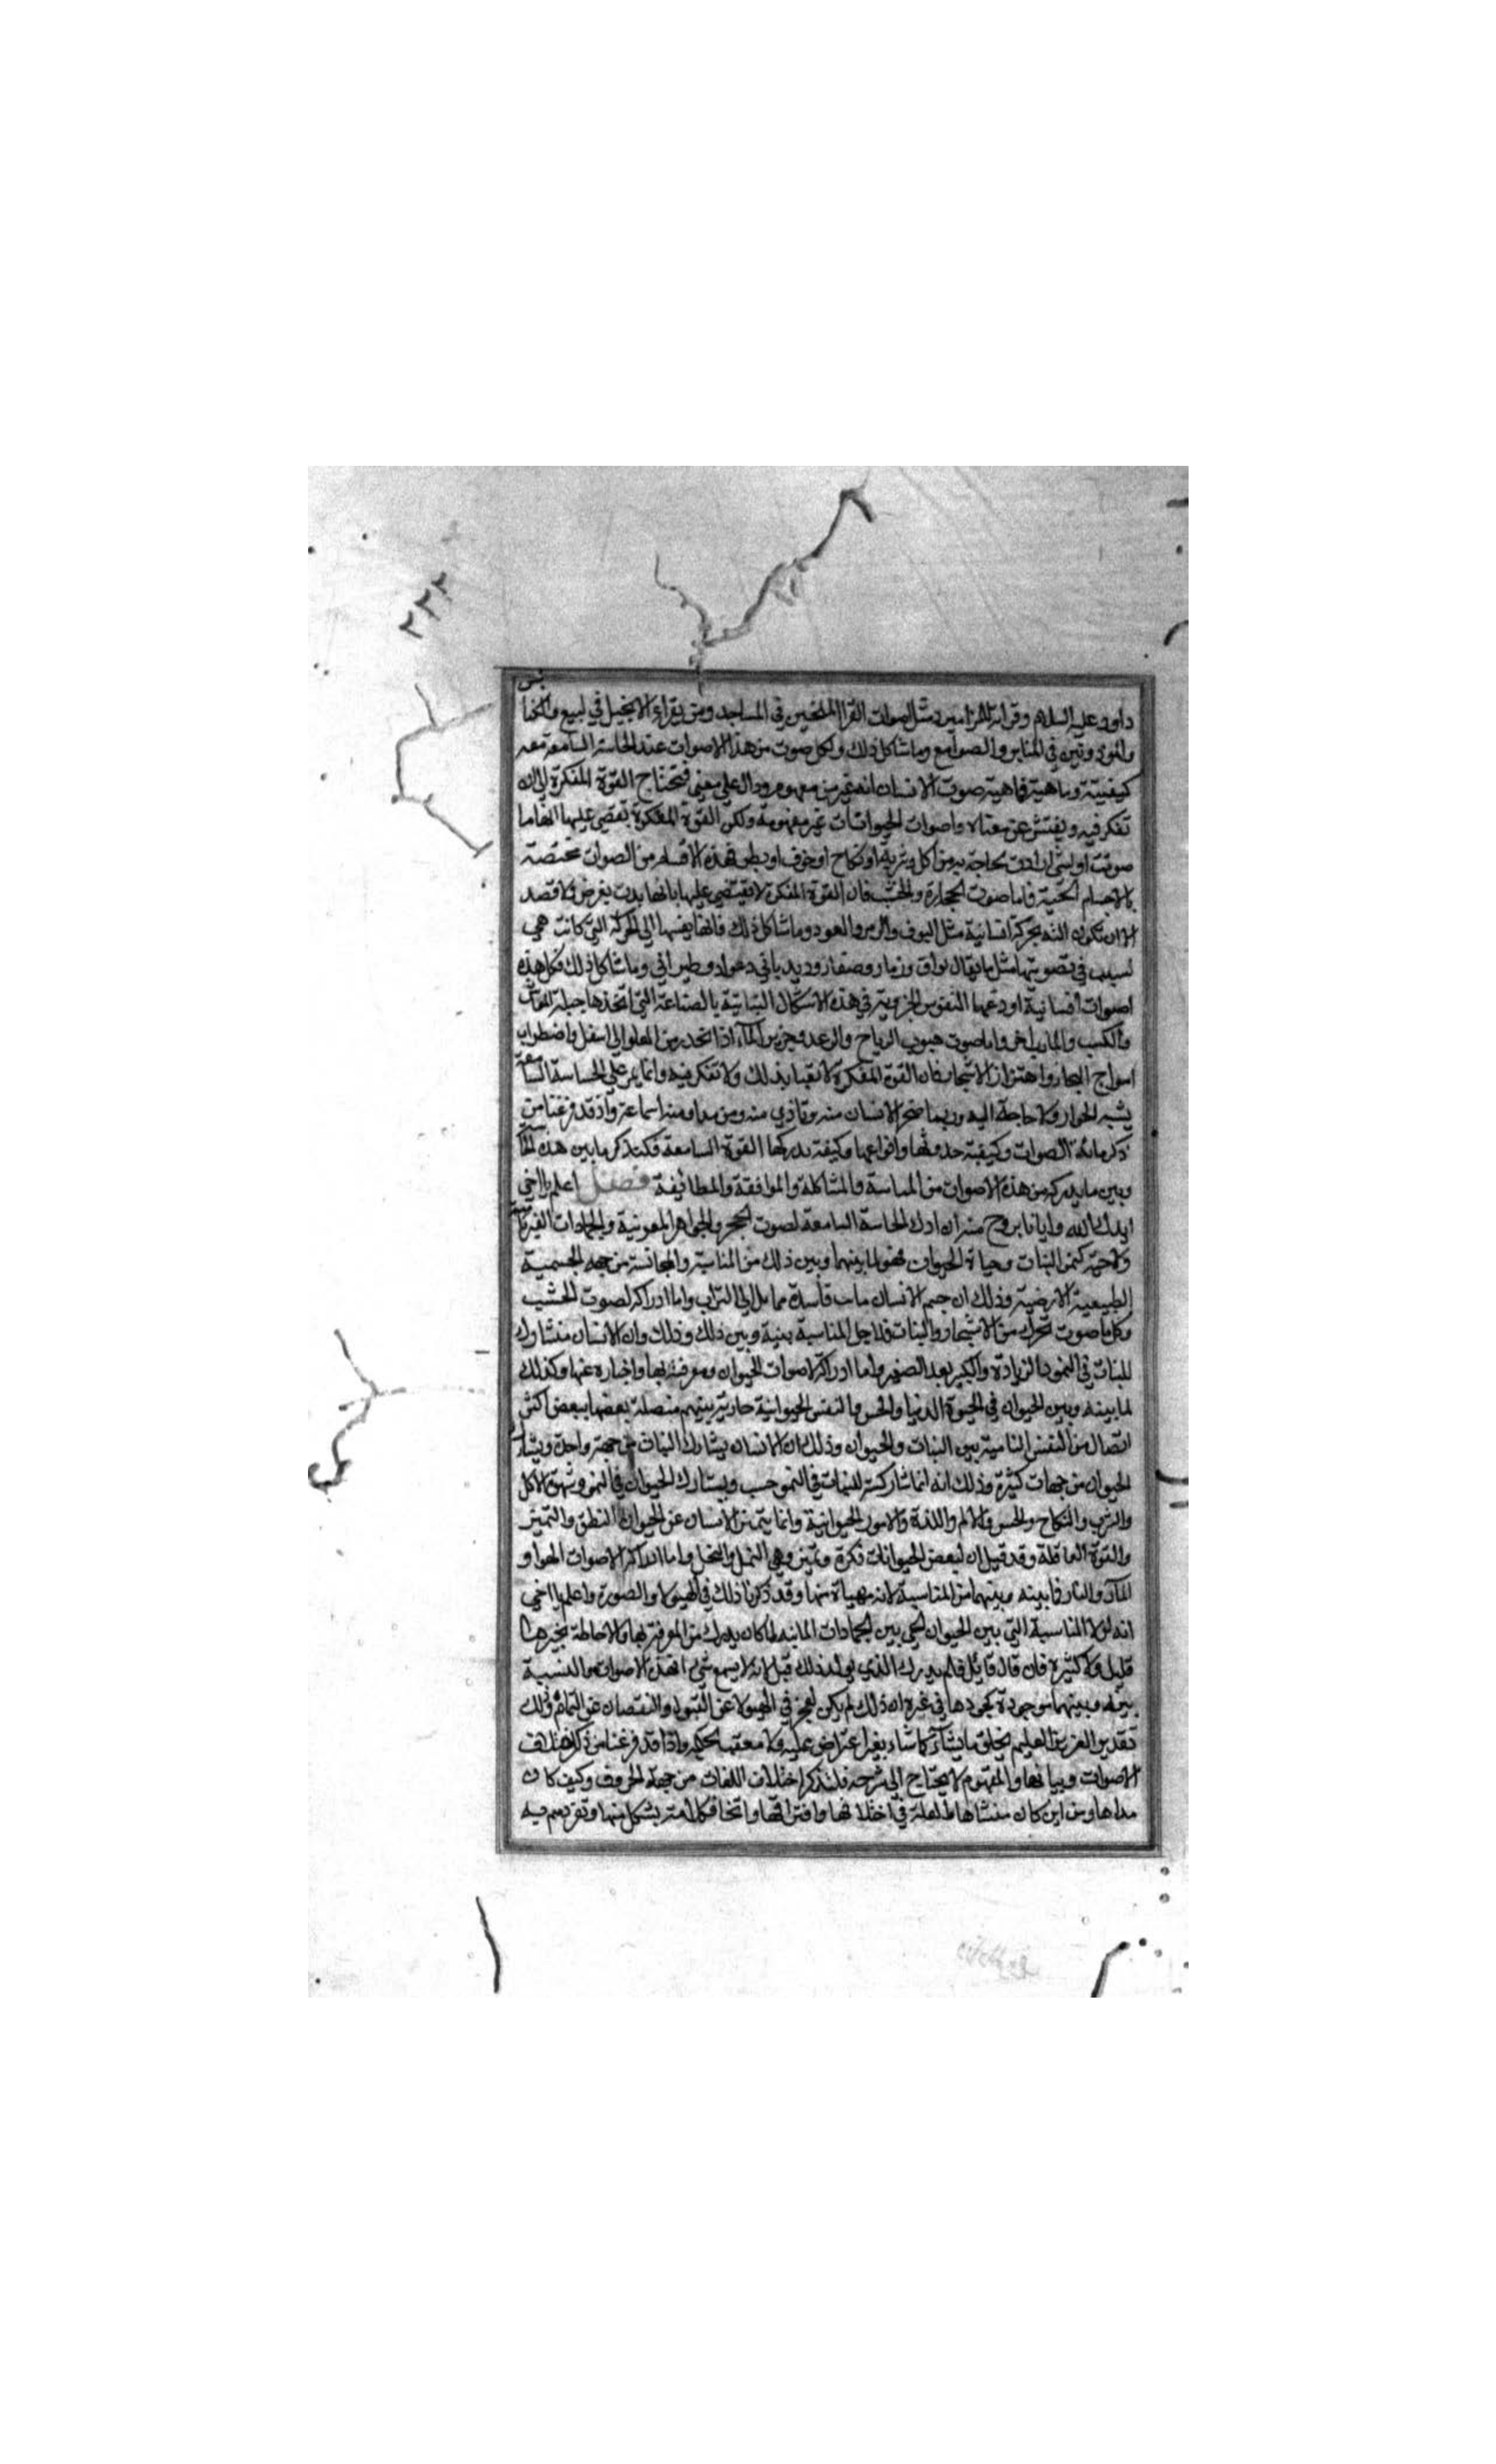 ٢٢٢
داود عليه السلام وقراته المزامير ومثل اصوات القرا الملحنين في المساجد ومن يقراء الانجيل في لبيع والكنا
يس
والموذونين في المنابر والصوامع وما شاكل ذلك ولكل صوت من هذا الاصوات عند الحاسة السامعة معر
كيفيتة وماهية فماهية صوت الانسان انه غير مفهوم ودال على معنى فتحتاج القوة المفكرة الى ان
تفكر فيه ويفتش عن معناه واصوات الحيوانات غير مفهومة ولكن القوة المفكرة تقضي عليها انها ما
صوتت او لشى ارادت بحاجة من اكل وشربه او نكاح او خوف او بطر فهذه الاقسام من الصوات مختصة
بالاجسام الحية فاما صوت الحجارة والخشب فان القوة المفكرة لا تقتضي عليها بانها بدت بغرض ولا قصد
الا ان تكون بحركة انسانية مثل البوق والزمر والعود وما شاكل ذلك فانها يضيفها الى الحركة التي كانت هي
لسبب في تصويتها مثل ما يقال بواق وزمار وصفار ودبدباني وعواد وطبراني وما شاكل ذلك فكل هذه
اصوات انسانية اودعها النفوس الجزوية في هذه الاشكال النباتية بالصناعة التي اتخذها حيلة للمعاش
والكسب والمارب اخر واما صوت هبوب الرياح والرعد وخرير المآء اذا تحدر من العلو الى اسفل واضطراب
امواج البحار واهتزاز الاشجار فان القوة المفكرة لا تعبا بذلك ولا تتفكر فيه وانما يمر على الحساسة السا
معة
يشبه الخوار ولا حاجة اليه وربما ضجر الانسان منه وتاذى منه ومن مداومته اسماعه واذ قد فرغنا من
ذكر مائة الصوات وكيفية حدوثها وانواعها وكيفة يدركها القوة السامعة فلنذكر ما بين هذه الحا
سة
وبين ما يدركه من هذه الاصوات من المناسبة والمشاكلة والموافقة والمطائيفة فصل اعلم يا اخي
ايدك الله وايانا بروح منه ان ادراك الحاسة السامعة لصوت الحجر والجواهر المعدنية والجمادات الغير نا
مية
ولا حية كنمو النبات وحياة الحيوان فهو لما بينهما وبين ذلك من المناسبة والمجانسة من جهة الجسمية
الطبيعية الارضية وذلك ان جسم الانسان مات فاسدة مما يل الى التراب واما ادراكه لصوت الخشب
وكل ما صوت تحرك من الاشجار والنبات فلاجل المناسبة بينة وبين ذلك وذلك وان الانسان منشاول
للنبات في النمو والزيادة والكبر بعد الصغر واما ادراكه اصوات الحيوان ومعرفته بها واخباره عنها وكذلك
لما بينه وبين الحيوان في الحيوة الدنيا والحس والنفس الحيوانية جارية بينهم متصلة بعضها ببعض اكثر
اتصال من النفس النامية بين النبات والحيوان وذلك ان الانسان يشارك النبات من جهة واحدة ويشار
ك
الحيوان من جهات كثيرة وذلك انه انما شاركته للنبات في النمو حسب ويشارك الحيوان في النمو وشهوة الاكل
والشرب والنكاح والحس والالم واللذة والامور الحيوانية وانما يتميز الانسان عن الحيوان النطق والتميز
والقوة العاقلة وقد قيل ان لبعض الحيوانات فكرة وتميز وهي النمل والنحل واما ادراكه الاصوات الهوا و
المآء والنار فما بينه وبينهما من المناسبة لانه مهياة منها وقد ذكرنا ذلك في الهيولا والصورة واعلم يا اخي
انه لولا المناسبة التي بين الحيوان لحي بين الجمادات المانيه لما كان يدرك من المعرفة بها والاحاطة بخبرها
قليل ولا كثيرة فان قال قايل فلم يدرك الذي يولد ذلك قيل لانه لا يسمع شي من هذه الاصوات والنسبة
بينه وبينها موجودة كوجودها في غيره ان ذلك لم يكن لعجز في الهيولا عن القبول والنقصان عن التمام ولك
تقدير العزيز العليم يخلق ما يشآء كما شاء بغير اعتراض عليه ولا معقب لحكمه واذا قد فرغنا من ذكر هذه
الاصوات وبيانها والمفهوم لا يحتاج الى شرحه فلنذكر اختلاف اللغات من جهة الحروف وكيف كان
مداها ومن اين كان منشاها والعلة في اختلافها وافتراقها واتخاذ كل امة بشكل منها وتفردهم به